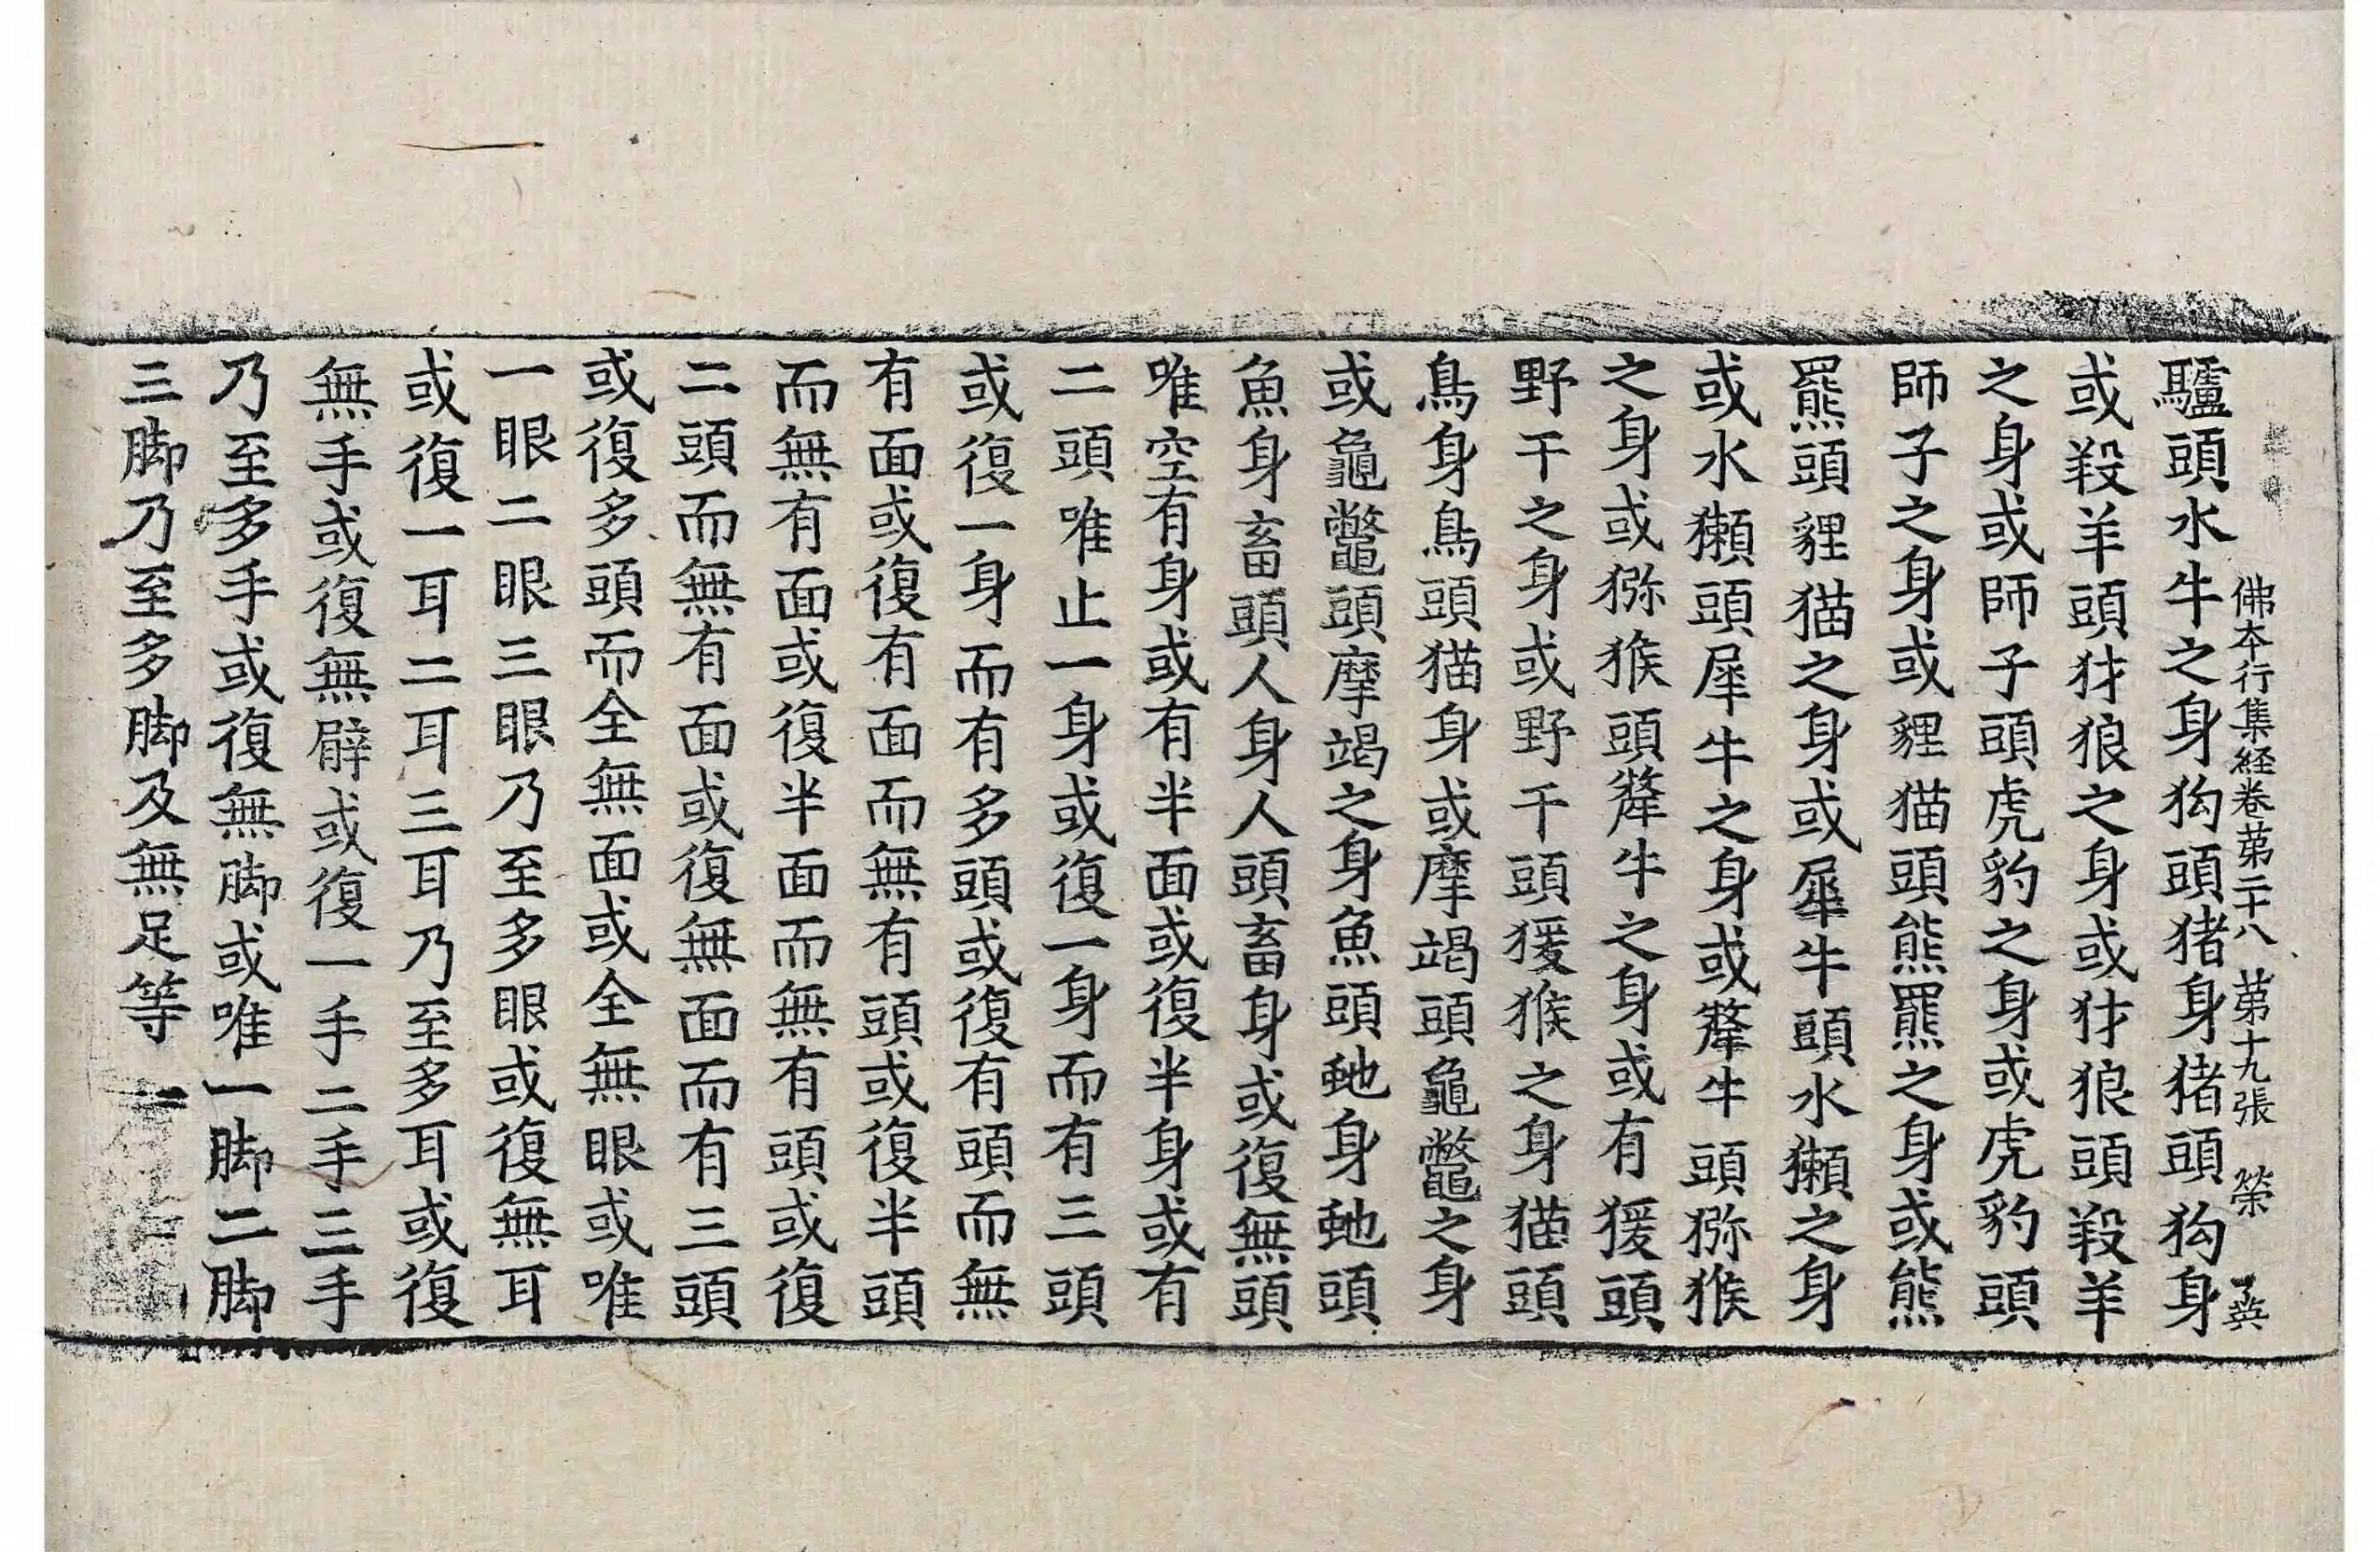 佛本行集経卷第二十八 第十九張 榮
驢頭水牛之身狗頭猪身猪頭狗身
或羖羊頭犲狼之身或犲狼頭羖羊
之身或師子頭虎豹之身或虎豹頭
師子之身或貍猫頭熊羆之身或熊
羆頭貍猫之身或犀牛頭水獺之身
或水獺頭犀牛之身或犛牛頭猕猴
之身或猕猴頭犛牛之身或有猨頭
野干之身或野干頭猨猴之身猫頭
鳥身鳥頭猫身或摩竭頭龜鼈之身
或龜鼈頭摩竭之身魚頭虵身虵頭
魚身畜頭人身人頭畜身或復無頭
唯空有身或有半面或復半身或有
二頭唯止一身或復一身而有三頭
或復一身而有多頭或復有頭而無
有面或復有面而無有頭或復半頭
而無有面或復半面而無有頭或復
二頭而無有面或復無面而有三頭
或復多頭而全無面或全無眼或唯
一眼二眼三眼乃至多眼或復無耳
或復一耳二耳三耳乃至多耳或復
無手或復無臂或復一手二手三手
乃至多手或復無脚或唯一脚二脚
三脚乃至多脚及無足等